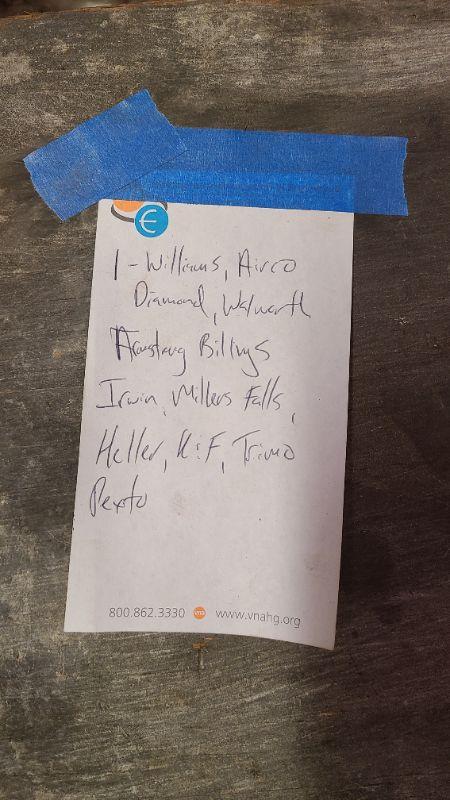 1 - Williams, Airco
Diamond, Walworth
Armstrong Billings
Irwin, Millers Falls,
Heller, K:F, Trimo
Pexto
800.862.3330 vna www.vnahg.org